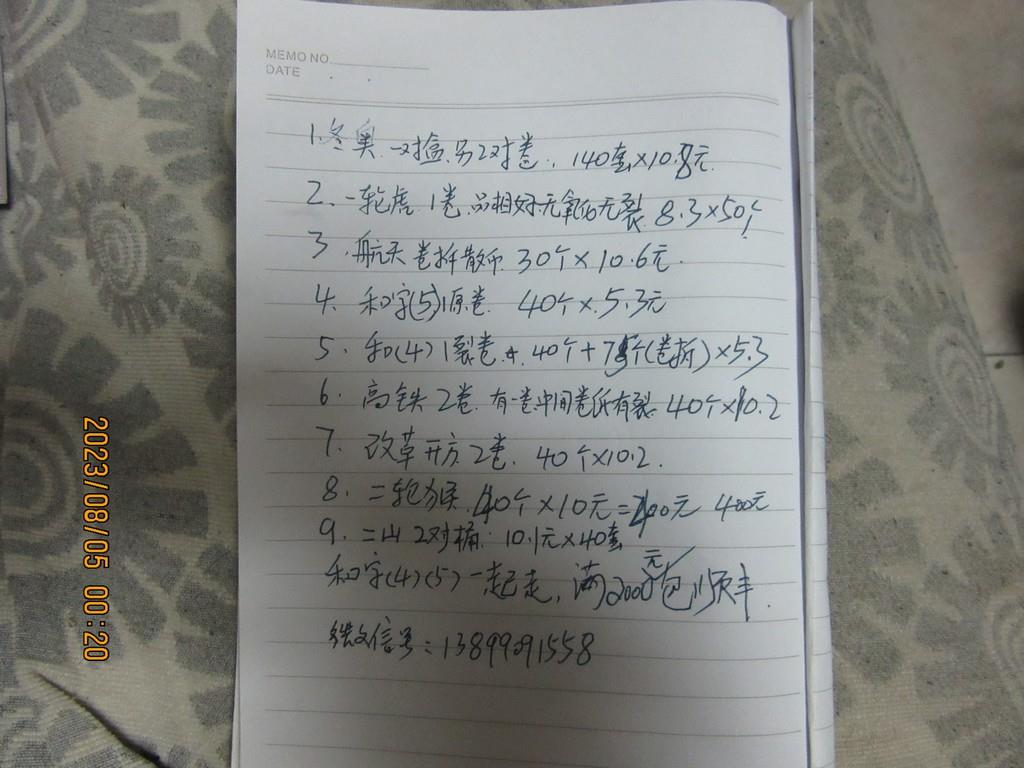 MEMO NO.
DATE
1.冬奥.一对盒.另2对卷., 140套×10.8元.
2.一轮虎 1卷.品相好无氧化无裂. 8.3×50个
3.航天 卷拆散币. 30个×10.6元.
4.和字(5)1原卷. 40个×5.3元
5.和(4)1裂卷 40个+7个(卷拆)×5.3
6.高铁2卷.有一卷中间卷纸有裂. 40个×10.2
7.改革开方2卷. 40个×10.2.
8.二轮猴. 40个×10元=400元 400元
9.二山2对桶. 10.1元×40套
和字(4)(5)一起走,满2000元包顺丰.
微信号:13899291558
2023/08/05 00:20